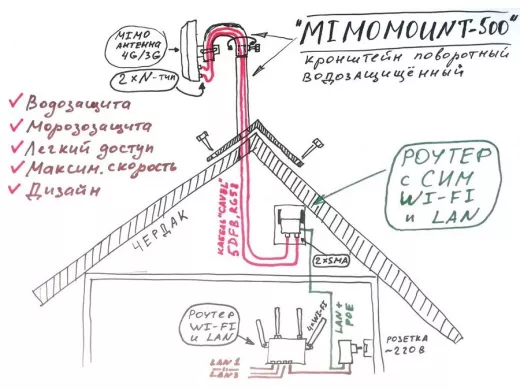 "MIMOMOUNT-500"
кронштейн поворотный
водозащищённый
MIMO
АНТЕННА
4G/3G
2×N-тип
✓ Водозащита
✓ Морозозащита
✓ Лёгкий доступ
✓ Максим. скорость
✓ Дизайн
РОУТЕР
С СИМ
WI-FI
и LAN
ЧЕРДАК
КАБЕЛЬ "CAVEL"
5DFB, RG58
2×SMA
LAN+
POE
РОУТЕР
WI-FI
и LAN
WI-FI
РОЗЕТКА
~220В
LAN1